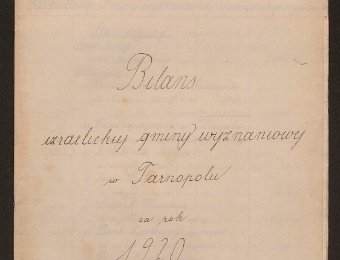 Bilans
izraelickiej gminy wyznaniowej
w Tarnopolu
za rok
1920